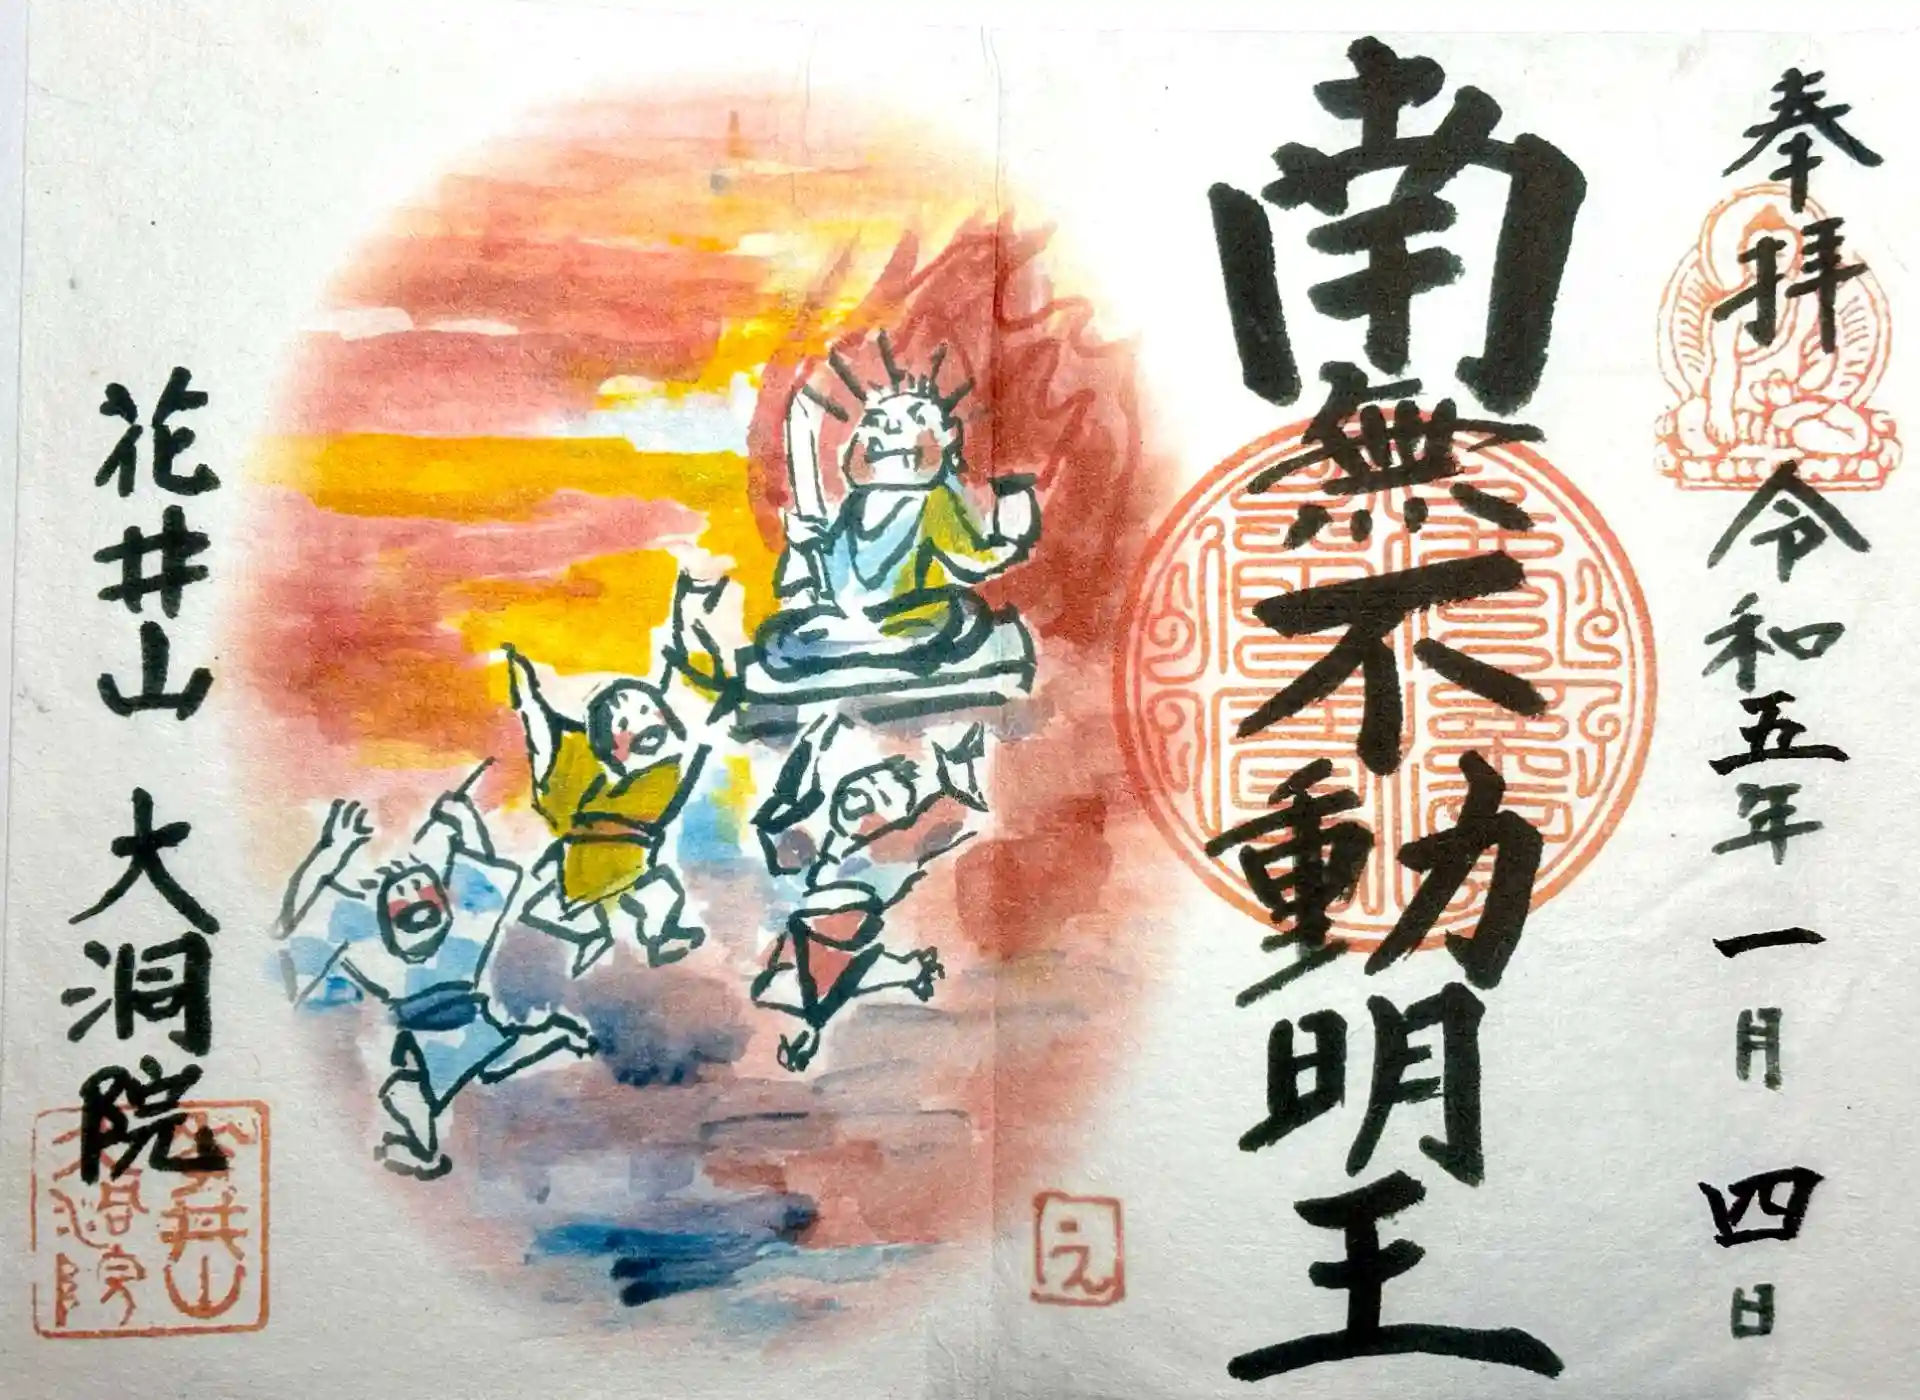 奉拝 令和五年一月四日
南無不動明王
え
花井山 大洞院